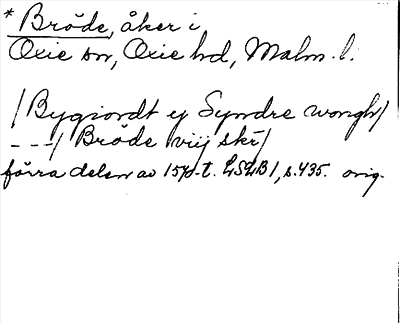 * Bröde, åker i
Oxie sn, Oxie hd, Malm. l.
/Bygiordt ej Syndre wongh/
---/ Bröde viij skr/
förra delen av 1570-t. LSLB 1, s. 435. orig.